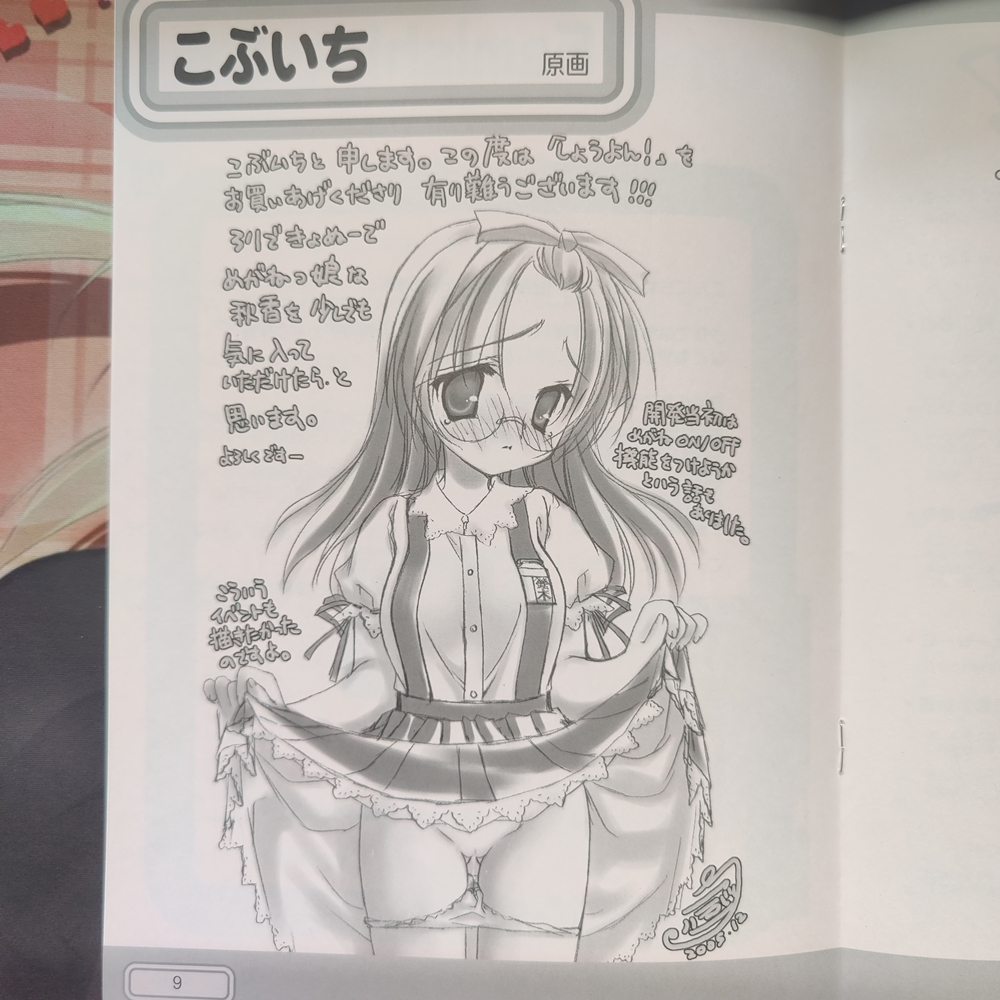 こぶいち
原画
こぶいちと申します。この度は「しょうよん!」を
お買いあげくださり 有り難うございます!!!
ろりできょぬーで
めがねっ娘な
秋香を少しでも
気に入って
いただけたら、と
思います。
よろしくですー
開発当初は
めがねON/OFF
機能をつけようか
という話も
ありました。
鈴木
こういう
イベントも
描きたかった
のですよ。
こぶいち
2005.12
9